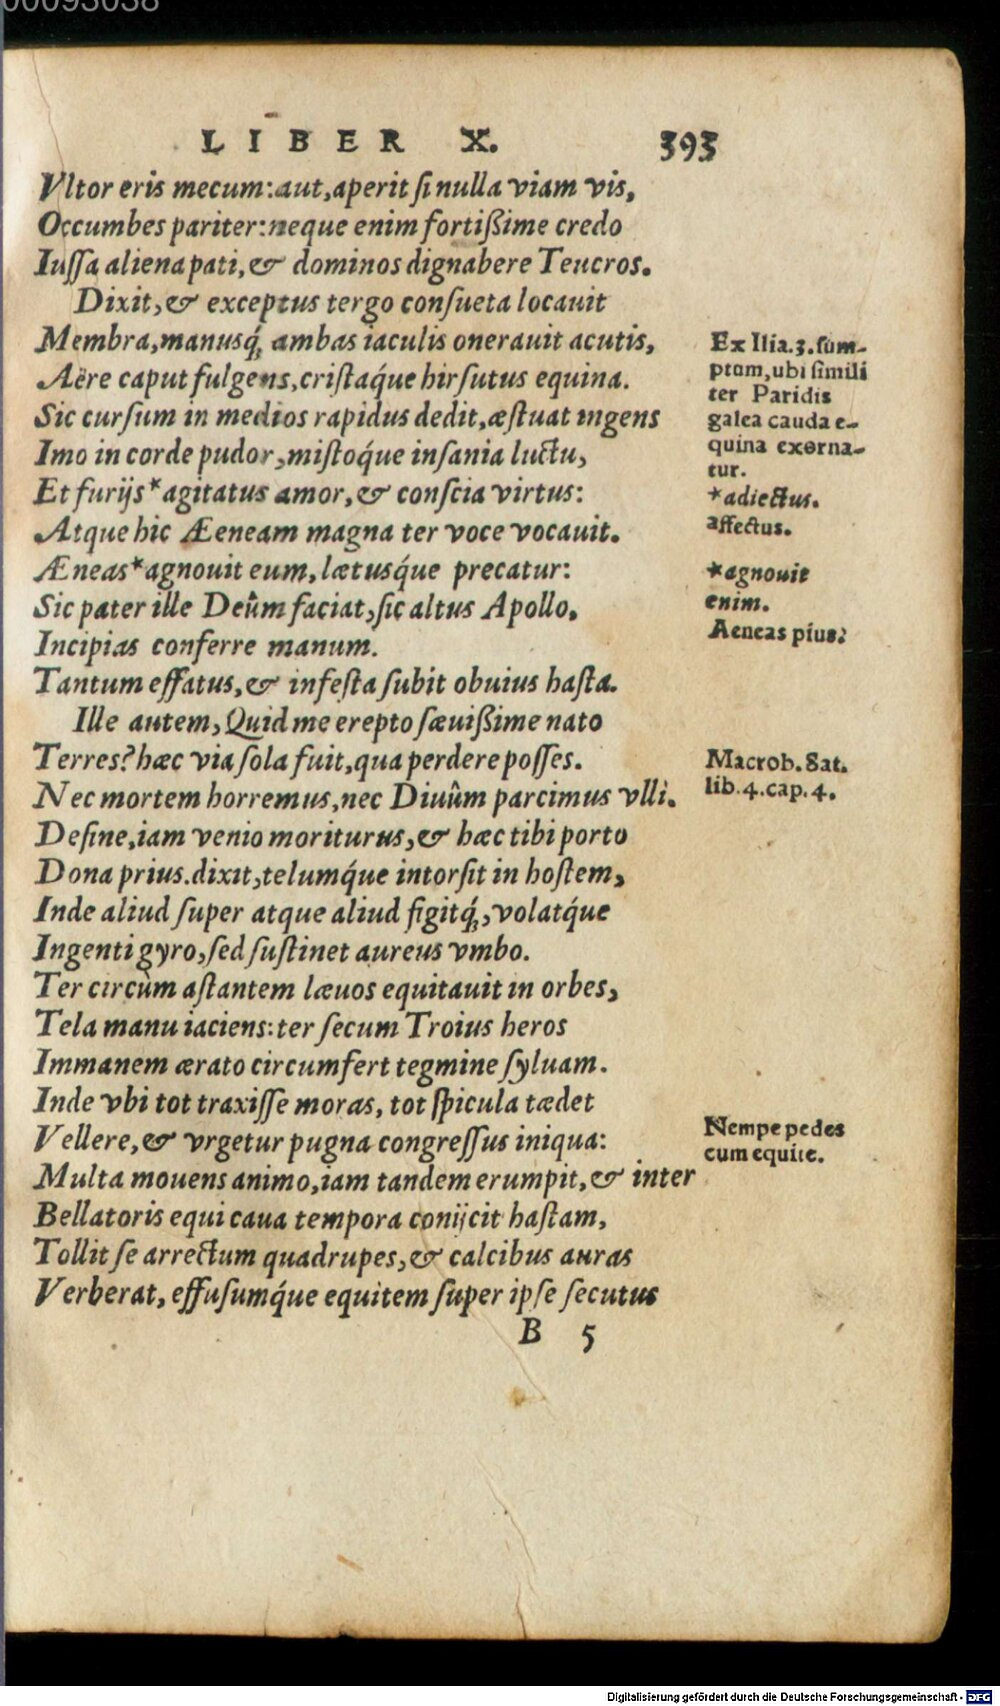 00093038
LIBER X. 393
Vltor eris mecum: aut, aperit ſi nulla viam vis,
Occumbes pariter: neque enim fortißime credo
Iuſſa aliena pati, & dominos dignabere Teucros.
Dixit, & exceptus tergo conſueta locauit
Membra, manusq́; ambas iaculis onerauit acutis,
Aëre caput fulgens, criſtaq́ue hirſutus equina.
Sic curſum in medios rapidus dedit, æſtuat ingens
Imo in corde pudor, miſtoq́ue inſania luctu,
Et furijs *agitatus amor, & conſcia virtus:
Atque hic Æeneam magna ter voce vocauit.
Æneas *agnouit eum, lætusq́ue precatur:
Sic pater ille Deûm faciat, ſic altus Apollo,
Incipias conferre manum.
Tantum effatus, & infeſta ſubit obuius haſta.
Ille autem, Quid me erepto ſæuißime nato
Terres? hæc via ſola fuit, qua perdere poſſes.
Nec mortem horremus, nec Diuûm parcimus vlli.
Deſine, iam venio moriturus, & hæc tibi porto
Dona prius. dixit, telumq́ue intorſit in hoſtem,
Inde aliud ſuper atque aliud figitq́;, volatq́ue
Ingenti gyro, ſed ſuſtinet aureus vmbo.
Ter circùm aſtantem læuos equitauit in orbes,
Tela manu iaciens: ter ſecum Troius heros
Immanem ærato circumfert tegmine ſyluam.
Inde vbi tot traxiſſe moras, tot ſpicula tædet
Vellere, & vrgetur pugna congreſſus iniqua:
Multa mouens animo, iam tandem erumpit, & inter
Bellatoris equi caua tempora conijcit haſtam,
Tollit ſe arrectum quadrupes, & calcibus auras
Verberat, effuſumq́ue equitem ſuper ipſe ſecutus
B 5
Ex Ilia. 3. ſum-
ptum, ubi ſimili
ter Paridis
galea cauda e-
quina exorna-
tur.
*adiectus.
affectus.
*agnouit
enim.
Aeneas pius?
Macrob. Sat.
lib. 4. cap. 4.
Nempe pedes
cum equite.
Digitalisierung gefördert durch die Deutsche Forschungsgemeinschaft - DFG